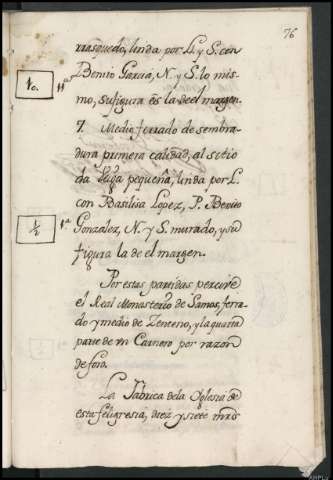 76
linda por L. y S. con
Benito Garcia, N. y S. lo mis-
mo, su figura es la de el margen.
7. Medio ferrado de sembra-
dura primera calidad, al sitio
da Veiga pequeña, linda por L.
con Basilisa Lopez, P. Benito
½
1ª
Gonzalez, N. y S. murado, y su
figura la de el margen.
Por estas partidas percive
el Real Monasterio de Samos, ferra-
do y medio de Zenteno, y la quarta
parte de un Carnero por razon
de foro.
La Fabrica de la Yglesia de
esta feligresia, diez y siete mrs